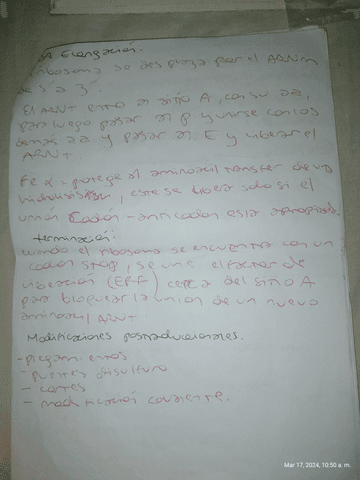 Elongación.
ribosoma se desplaza por el ARNm
de 5' a 3'.
El ARNt entra al sitio A, con su aa,
para luego pasar al P y unirse con los
demas aa y pasar al E y liberar el
ARNt.
Fe α - protege al aminoacil transfer de una
hidrolisis, este se libera solo si el
unión codon - anticodon esta apropiado.
terminación:
cuando el ribosoma se encuentra con un
codon stop, se une el factor de
liberación (ERF) cerca del sitio A
para bloquear la union de un nuevo
aminoacil ARNt.
Modificaciones postraduccionales.
- plegamientos
- puentes disulfuro
- cortes
- modificación covalente.
Mar 17, 2024, 10:50 a. m.